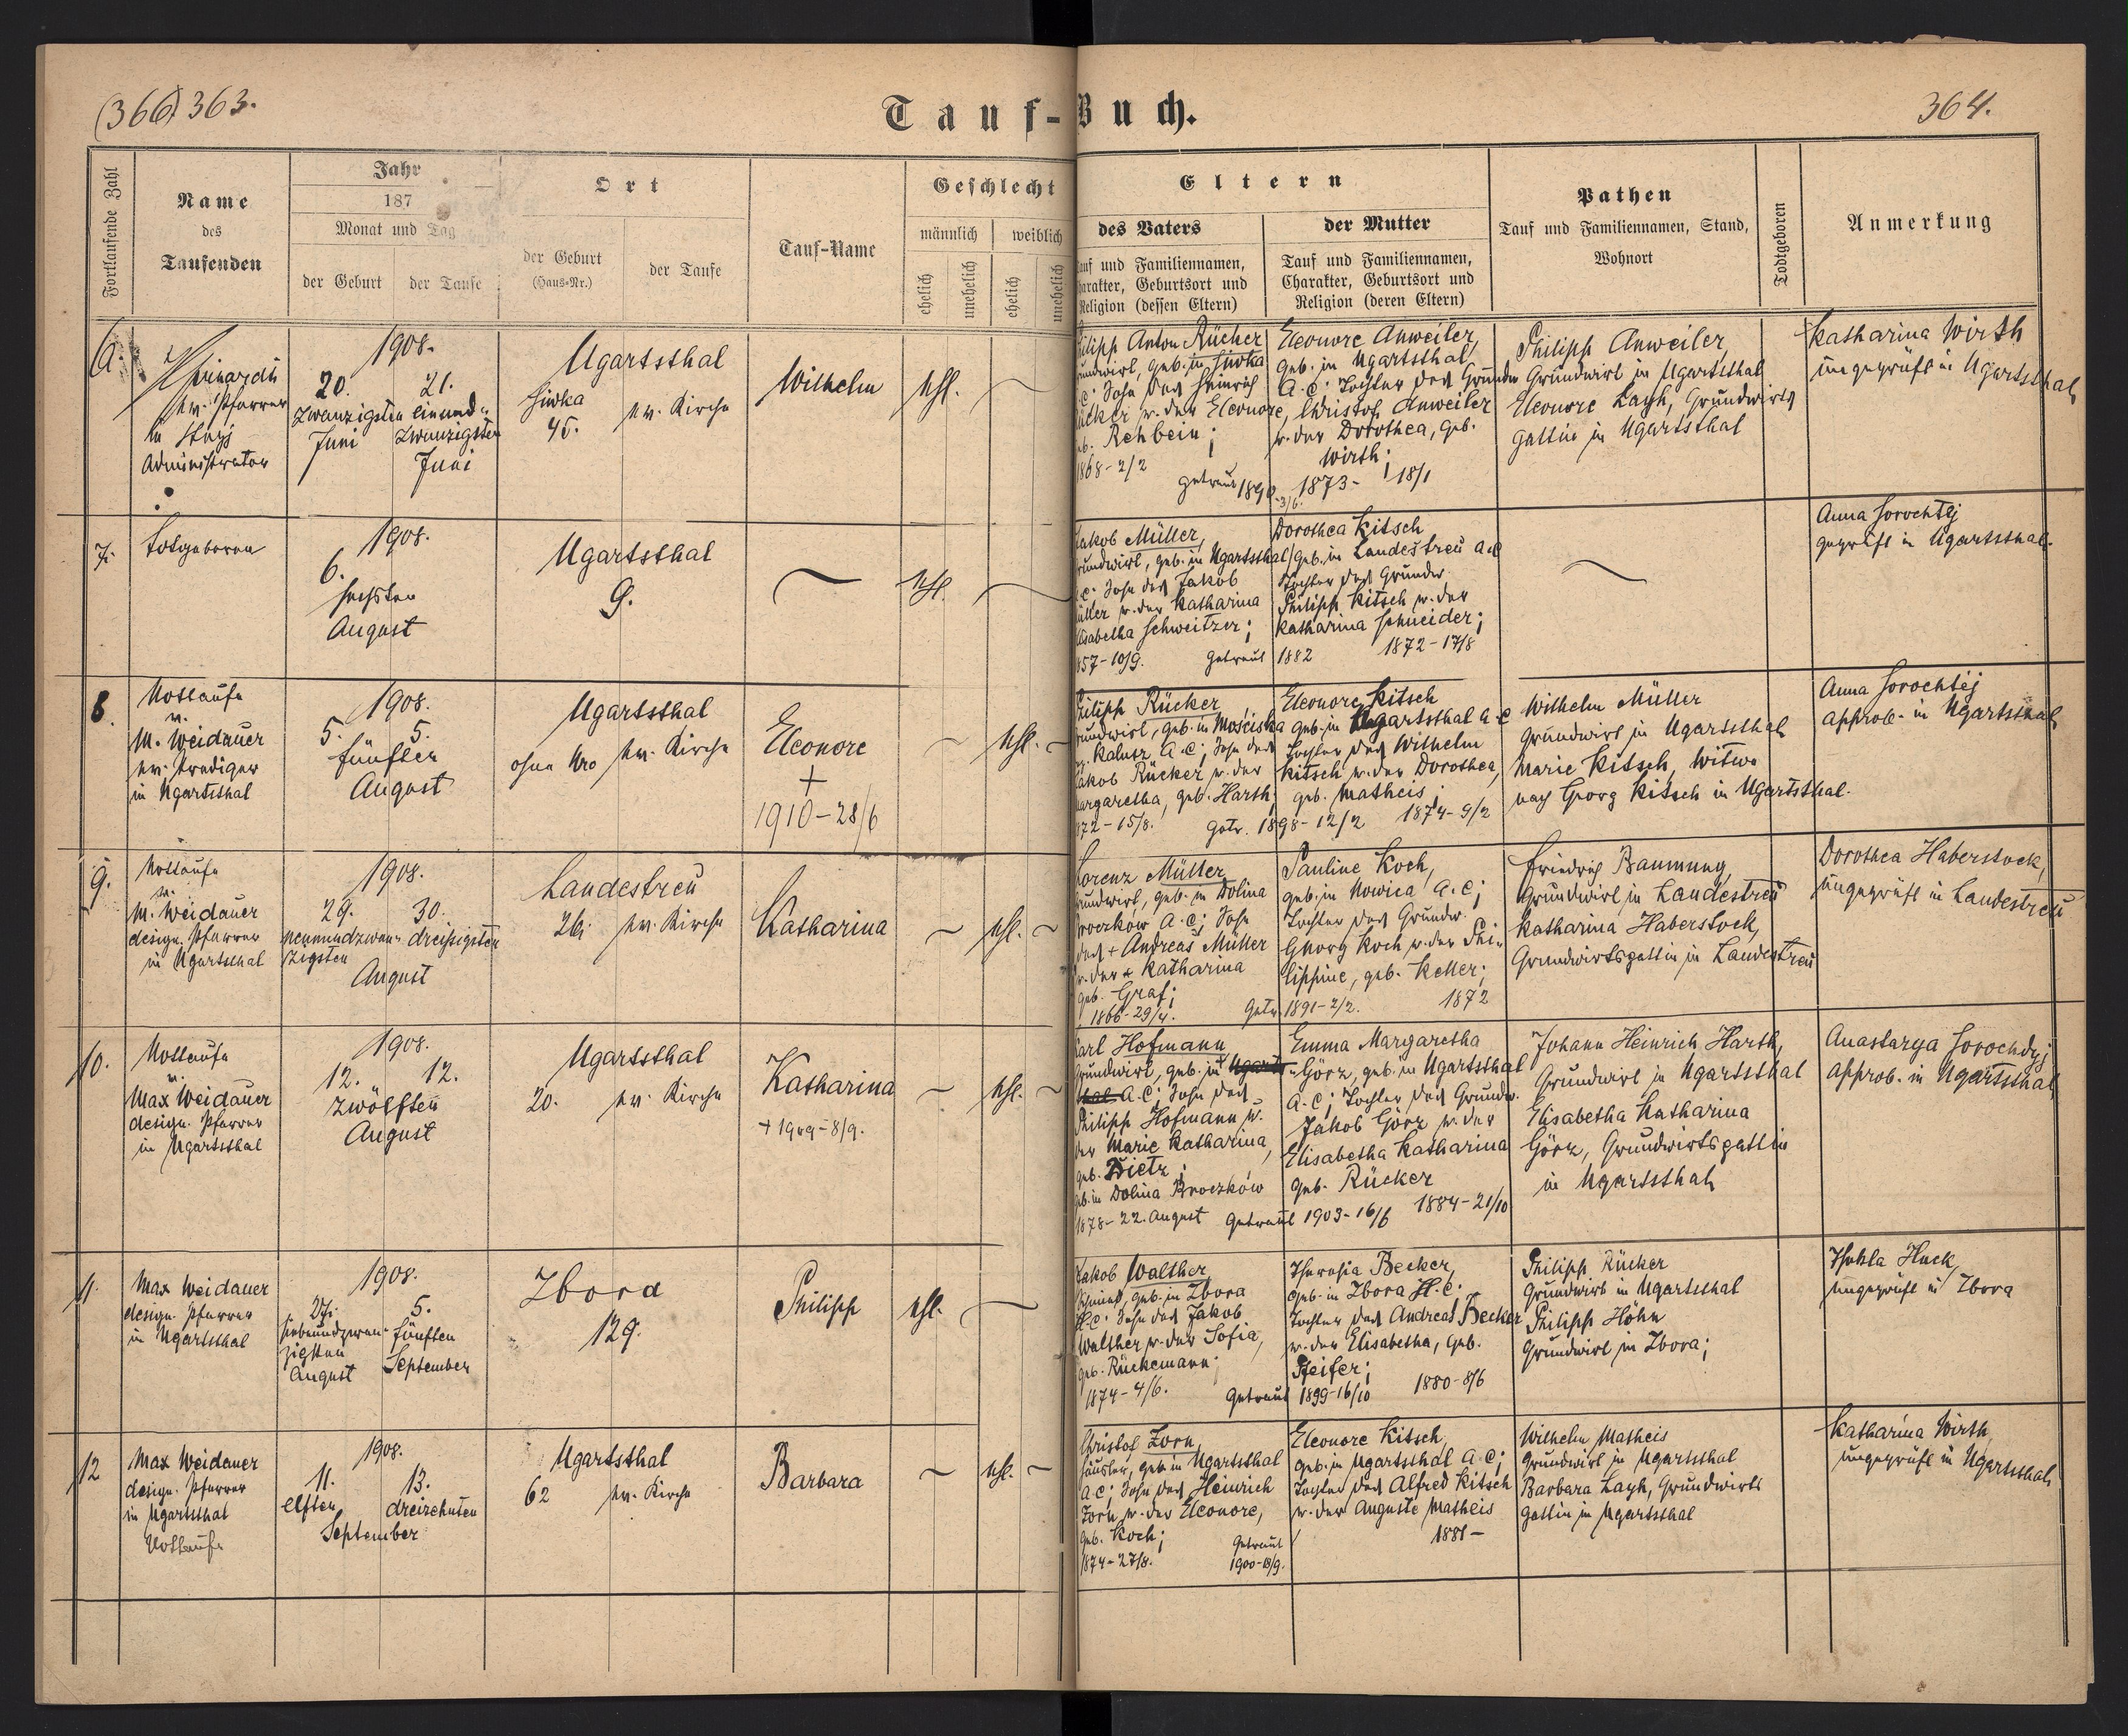 (366) 363.
Tauf-Buch.
364.
Fortlaufende Zahl
Name
des
Taufenden
Jahr
187
Monat und Tag
der Geburt
der Taufe
Ort
der Geburt
(Haus-Nr.)
der Taufe
Tauf-Name
Geschlecht
männlich
weiblich
ehelich
unehelich
ehelich
unehelich
Eltern
des Vaters
auf und Familiennamen,
harakter, Geburtsort und
Religion (dessen Eltern)
der Mutter
Tauf und Familiennamen,
Charakter, Geburtsort und
Religion (deren Eltern)
Pathen
Tauf und Familiennamen, Stand,
Wohnort
Todtgeboren
Anmerkung
6.
ev. Pfarrer
in Stryj
Administrator
1908.
20.
zwanzigsten
Juni
21.
einund-
zwanzigsten
Juni
Ugartsthal
Siwka
45.
ev. Kirche
Wilhelm
ehl.
ilipp Anton Rücker
undwirt, geb. in Siwka
c: Sohn des Heinrich
ücker u. der Eleonore,
eb. Rehbein;
1868-2/2
getraut 1890-3/6.
Eleonore Anweiler,
geb. in Ugartsthal
A.C: Tochter des Grundw.
Christof Anweiler
u. der Dorothea, geb.
Wirth;
1873- 18/1
Philipp Anweiler,
Grundwirt in Ugartsthal
Eleonore Layh, Grundwirts
gattin in Ugartsthal
Katharina Wirth
ungeprüft in Ugartsthal
7.
Totgeboren
1908.
6.
sechsten
August
Ugartsthal
9.
ehl.
Jakob Müller,
rundwirt, geb. in Ugartsthal
c: Sohn des Jakob
üller u. der Katharina
lisabetha Schweitzer;
857-10/9.
getraut 1882
Dorothea Kitsch
geb. in Landestreu A.C
Tochter des Grundw.
Philipp Kitsch u. der
Katharina Schneider;
1872-17/8
Anna Sorochtej
geprüft in Ugartsthal.
8.
Nottaufe
u.
M. Weidauer
ev. Prediger
in Ugartsthal
1908.
5. 5.
fünften
August
Ugartsthal
ohne Nro
ev. Kirche
Eleonore
+
1910-28/6
ehl.
Philipp Rücker
rundwirt, geb. in Mościska
Kalusz A.C; Sohn des
Jakob Rücker u. der
argaretha, geb. Harth;
872-15/8.
getr. 1898-12/2
Eleonore Kitsch
geb. in Ugartsthal A.C
Tochter des Wilhelm
Kitsch u. der Dorothea,
geb. Matheis;
1874-9/2
Wilhelm Müller
Grundwirt in Ugartsthal
Marie Kitsch, Witwe
nach Georg Kitsch in Ugartsthal.
Anna Sorochtej
approb. in Ugartsthal
9.
Nottaufe
u.
M. Weidauer
design. Pfarrer
in Ugartsthal
1908.
29.
neunundzwan-
zigsten
30.
dreißigsten
August
Landestreu
26.
ev. Kirche
Katharina
ehl.
Lorenz Müller
rundwirt, geb. in Dolina
roczków A.C; Sohn
des + Andreas Müller
u. der + Katharina
geb. Graf;
1866-29/4.
getr. 1891-2/2.
Pauline Koch,
geb. in Nowica A.C;
Tochter des Grundw.
Georg Koch u. der Phi-
lippine, geb. Keller;
1872
Friedrich Baumung,
Grundwirt in Landestreu
Katharina Haberstock,
Grundwirtsgattin in Landestreu
Dorothea Haberstock,
ungeprüft in Landestreu
10.
Nottaufe
u.
Max Weidauer
design. Pfarrer
in Ugartsthal
1908.
12. 12.
zwölften
August
Ugartsthal
20.
ev. Kirche
Katharina
+ 1909-8/9.
ehl.
Karl Hofmann
Grundwirt, geb. in Ugarts-
thal A.C; Sohn des
Philipp Hofmann u.
der Marie Katharina,
geb. Dietz;
geb. in Dolina Broczków
1878-22. August
getraut 1903-16/6
Emma Margaretha
Görz, geb. in Ugartsthal
A.C; Tochter des Grundw.
Jakob Görz u. der
Elisabetha Katharina
geb. Rücker
1884-21/10
Johann Heinrich Harth,
Grundwirt in Ugartsthal
Elisabetha Katharina
Görz, Grundwirtsgattin
in Ugartsthal
Anastazya Sorochdyj
approb. in Ugartsthal
11.
Max Weidauer
design. Pfarrer
in Ugartsthal
1908.
27.
siebenundzwan-
zigsten
August
5.
fünften
September
Zbora
129.
Philipp
ehl.
Jakob Walther,
Schmied, geb. in Zbora
H.C: Sohn des Jakob
Walther u. der Sofia,
geb. Rückemann;
1874-4/6.
getraut 1899-16/10
Theresia Becker,
geb. in Zbora H.C;
Tochter des Andreas Becker
u. der Elisabetha, geb.
Pfeifer;
1880-8/6
Philipp Rücker
Grundwirt in Ugartsthal
Philipp Höhn
Grundwirt in Zbora;
Thekla Huck,
ungeprüft in Zbora
12
Max Weidauer
design. Pfarrer
in Ugartsthal
Nottaufe
1908.
11.
elften
13.
dreizehnten
September
Ugartsthal
62
ev. Kirche
Barbara
ehl.
Christof Zorn,
Häusler, geb. in Ugartsthal
A.C; Sohn des Heinrich
Zorn u. der Eleonore,
geb. Koch;
1874-27/8.
getraut
1900-18/9.
Eleonore Kitsch,
geb. in Ugartsthal A.C;
Tochter des Alfred Kitsch
u. der Auguste Matheis
1881-
Wilhelm Matheis
Grundwirt in Ugartsthal
Barbara Layh, Grundwirts
gattin in Ugartsthal
Katharina Wirth,
ungeprüft in Ugartsthal